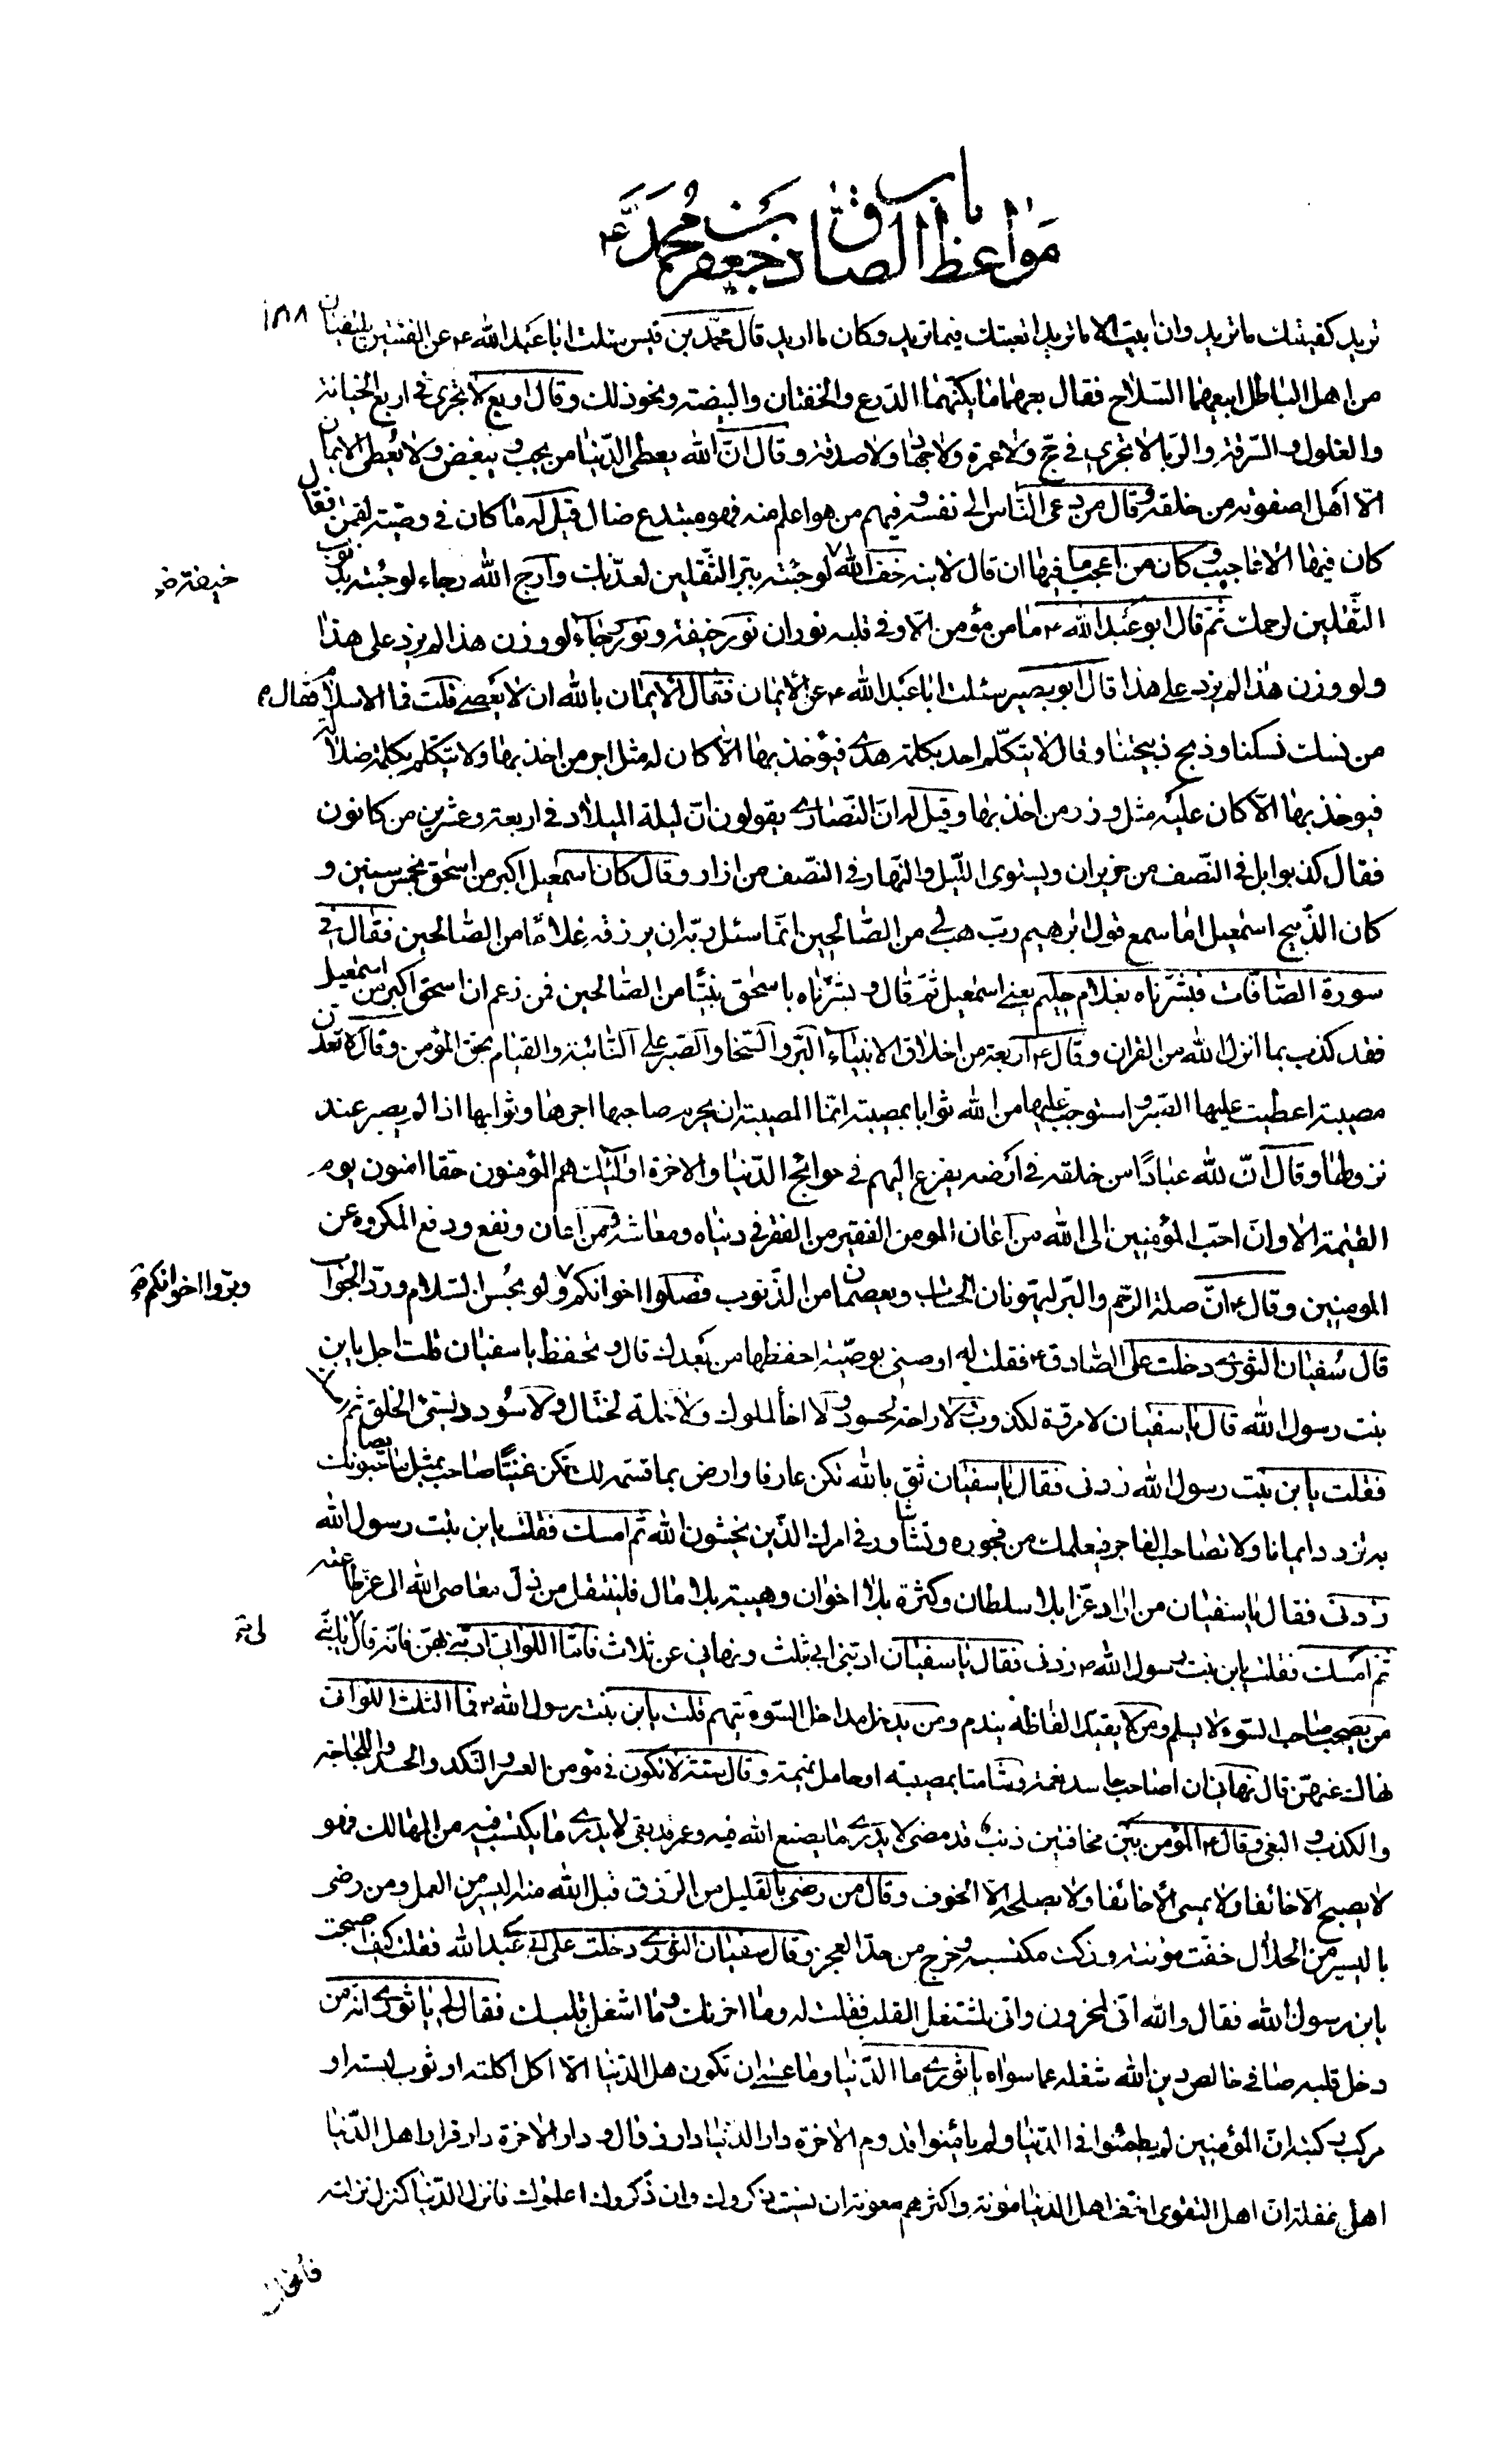 باب
مواعظ الصادق جعفر بن محمد ع
١٨٨
تريد كفيتك ما تريد وان ابيت الا ما تريد اتعبتك فيما تريد وكان ما اريد قال محمد بن قيس سئلت ابا عبد الله ع عن الفئتين يلتقيان
من اهل الباطل ابيعهما السلاح فقال بعهما ما يكنهما الدرع والخفتان والبيضة ونحو ذلك وقال اربع لا تجزى فى اربع الخيانة
والغلول والسرقة والربا لا تجزى فى حج ولا عمرة ولا جهاد ولا صدقة وقال ان الله يعطى الدنيا من يحب ويبغض ولا يعطى الايمان
الا اهل صفوته من خلقه وقال من دعى الناس الى نفسه وفيهم من هو اعلم منه فهو مبتدع ضال قيل له ما كان فى وصية لقمن فقال
كان فيها الاعاجيب وكان من اعجب ما فيها ان قال لابنه خف الله لو جئته ببر الثقلين لعذبك وارج الله رجاء لو جئته بذنوب
خيفة خ
الثقلين لرحمك ثم قال ابو عبد الله ع ما من مؤمن الا وفى قلبه نوران نور خيفة ونور رجاء لو وزن هذا لم يزد على هذا
ولو وزن هذا لم يزد على هذا قال ابو بصير سئلت ابا عبد الله ع عن الايمان فقال الايمان بالله ان لا يعصى قلت فما الاسلام فقال ع
من نسك نسكنا وذبح ذبيحتنا وقال لا يتكلم احد بكلمة هدى فيؤخذ بها الا كان له مثل اجر من اخذ بها ولا يتكلم بكلمة ضلالة
فيوخذ بها الا كان عليه مثل وزر من اخذ بها وقيل له ان النصارى يقولون ان ليلة الميلاد فى اربعة وعشرين من كانون
فقال كذبوا بل فى النصف من حزيران ويستوى الليل والنهار فى النصف من اذار وقال كان اسمعيل اكبر من اسحق بخمس سنين و
كان الذبيح اسمعيل اما سمع قول ابرهيم رب هب لى من الصالحين انما سئل ربه ان يرزقه غلاما من الصالحين فقال فى
سورة الصافات فبشرناه بغلام حليم يعنى اسمعيل ثم قال وبشرناه باسحق نبيا من الصالحين فمن زعم ان اسحق اكبر من اسمعيل
فقد كذب بما انزل الله من القران وقال ع اربعة من اخلاق الانبياء البر والسخا والصبر على النائبة والقيام بحق المؤمن وقال لا تعدن
مصيبة اعطيت عليها الصبر واستوجبت عليها من الله ثوابا بمصيبة انما المصيبة ان يحرم صاحبها اجرها وثوابها اذا لم يصبر عند
نزولها وقال ان لله عبادا من خلقه فى ارضه يفزع اليهم فى حوائج الدنيا والاخرة اولئك هم المؤمنون حقا امنون يوم
القيمة الا وان احب المؤمنين الى الله من اعان المومن الفقير من الفقر فى دنياه ومعاشه ومن اعان ونفع ودفع المكروه عن
المومنين وقال ع ان صلة الرحم والبر ليهونان الحساب ويعصمان من الذنوب فصلوا اخوانكم ولو بحسن السلام ورد الجواب
وبروا اخوانكم خ
قال سفيان الثورى دخلت على الصادق ع فقلت له اوصنى بوصية احفظها من بعدك قال وتحفظ يا سفيان قلت اجل يا بن
بنت رسول الله قال يا سفيان لا مروة لكذوب ولا راحة لحسود ولا اخا لملوك ولا خلة لمختال ولا سودد لسئ الخلق ثم امسك
فقلت يا بن بنت رسول الله زدنى فقال يا سفيان ثق بالله تكن عارفا وارض بما قسمه لك تكن غنيا صاحب بمثل ما يصاحبونك
به تزدد ايمانا ولا تصاحب الفاجر فيعلمك من فجوره وتشاور فى امرك الذين يخشون الله ثم امسك فقلت يا بن بنت رسول الله
زدنى فقال يا سفيان من اراد عزا بلا سلطان وكثرة بلا اخوان وهيبة بلا مال فلينتقل من ذل معاصى الله الى عز طاعته
ثم امسك فقلت يا بن بنت رسول الله ع زدنى فقال يا سفيان ادبنى ابى بثلث ونهانى عن ثلاث فاما اللواتى ادبنى بهن فانه قال يا بنى
لى خ
من يصحب صاحب السوء لا يسلم ومن لا يقيد الفاظه يندم ومن يدخل مداخل السوء يتهم قلت يا بن بنت رسول الله ع فما الثلث اللواتى
نهاك عنهن قال نهانى ان اصاحب حاسد نعمة وشامتا بمصيبة او حامل نميمة وقال ستة لا تكون فى مؤمن العسر والنكد والحسد واللجاجة
والكذب والبغى وقال ع المؤمن بين مخافتين ذنب قد مضى لا يدرى ما يصنع الله فيه وعمر قد بقى لا يدرى ما يكتسب فيه من المهالك فهو
لا يصبح الا خائفا ولا يمسى الا خائفا ولا يصلحه الا الخوف وقال من رضى بالقليل من الرزق قبل الله منه اليسير من العمل ومن رضى
باليسير من الحلال خفت مؤنته وزكت مكتسبه وخرج من حد العجز وقال سفيان الثورى دخلت على ابى عبد الله فقلت كيف اصبحت
يا بن رسول الله فقال والله انى لمحزون وانى لمشتغل القلب فقلت له وما احزنك وما اشغل قلبك فقال لى يا ثورى انه من
دخل قلبه صافى خالص دين الله شغله عما سواه يا ثورى ما الدنيا وما عسى ان تكون هل الدنيا الا اكل اكلته او ثوب لبسته او
مركب ركبته ان المؤمنين لم يطمئنوا فى الدنيا ولم يامنوا قدوم الاخرة دار الدنيا دار زوال ودار الاخرة دار قرار اهل الدنيا
اهل غفلة ان اهل التقوى اخف اهل الدنيا مؤنة واكثرهم معونة ان نسيت ذكروك وان ذكروك اعلموك فانزل الدنيا كمنزل نزلته